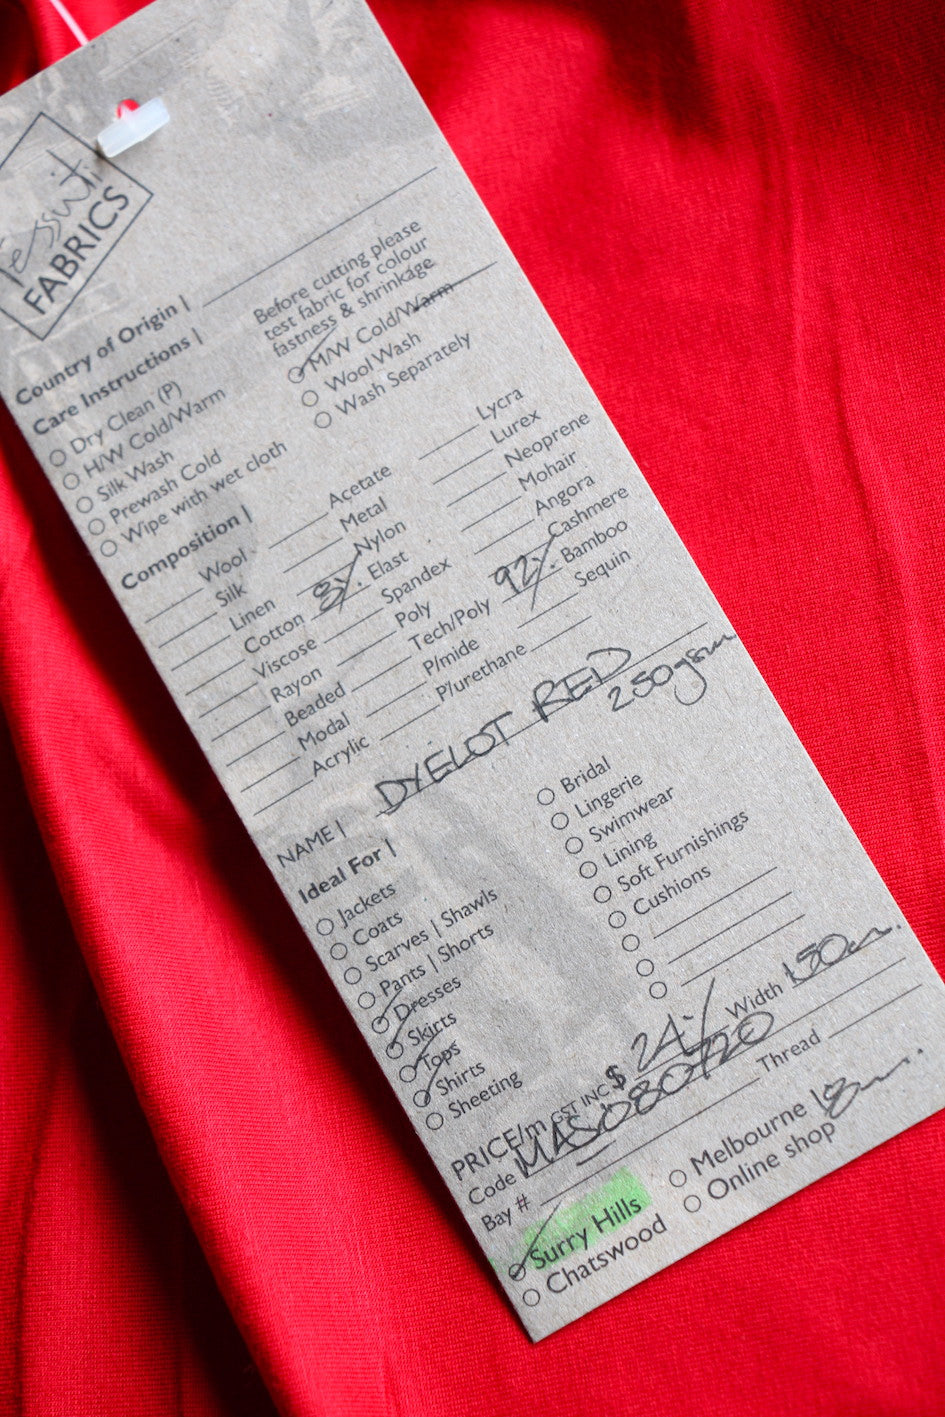 Tessuti
FABRICS
Country of Origin |
Care Instructions |
Before cutting please
test fabric for colour
fastness & shrinkage
Dry Clean (P)
H/W Cold/Warm
Silk Wash
Prewash Cold
Wipe with wet cloth
M/W Cold/Warm
Wool Wash
Wash Separately
Composition |
Wool
Silk
Linen
Cotton
Viscose
Rayon
Beaded
Modal
Acrylic
Acetate
Metal
Nylon
8% Elast
Spandex
Poly
Tech/Poly
P/mide
P/urethane
Lycra
Lurex
Neoprene
Mohair
Angora
Cashmere
92% Bamboo
Sequin
NAME | DYELOT RED
250gsm
Ideal For |
Jackets
Coats
Scarves | Shawls
Pants | Shorts
Dresses
Skirts
Tops
Shirts
Sheeting
Bridal
Lingerie
Swimwear
Lining
Soft Furnishings
Cushions
PRICE/m GST INC $ 24.- Width 150cm.
Code
Bay # Thread
Surry Hills
Chatswood
Melbourne 18m.
Online shop